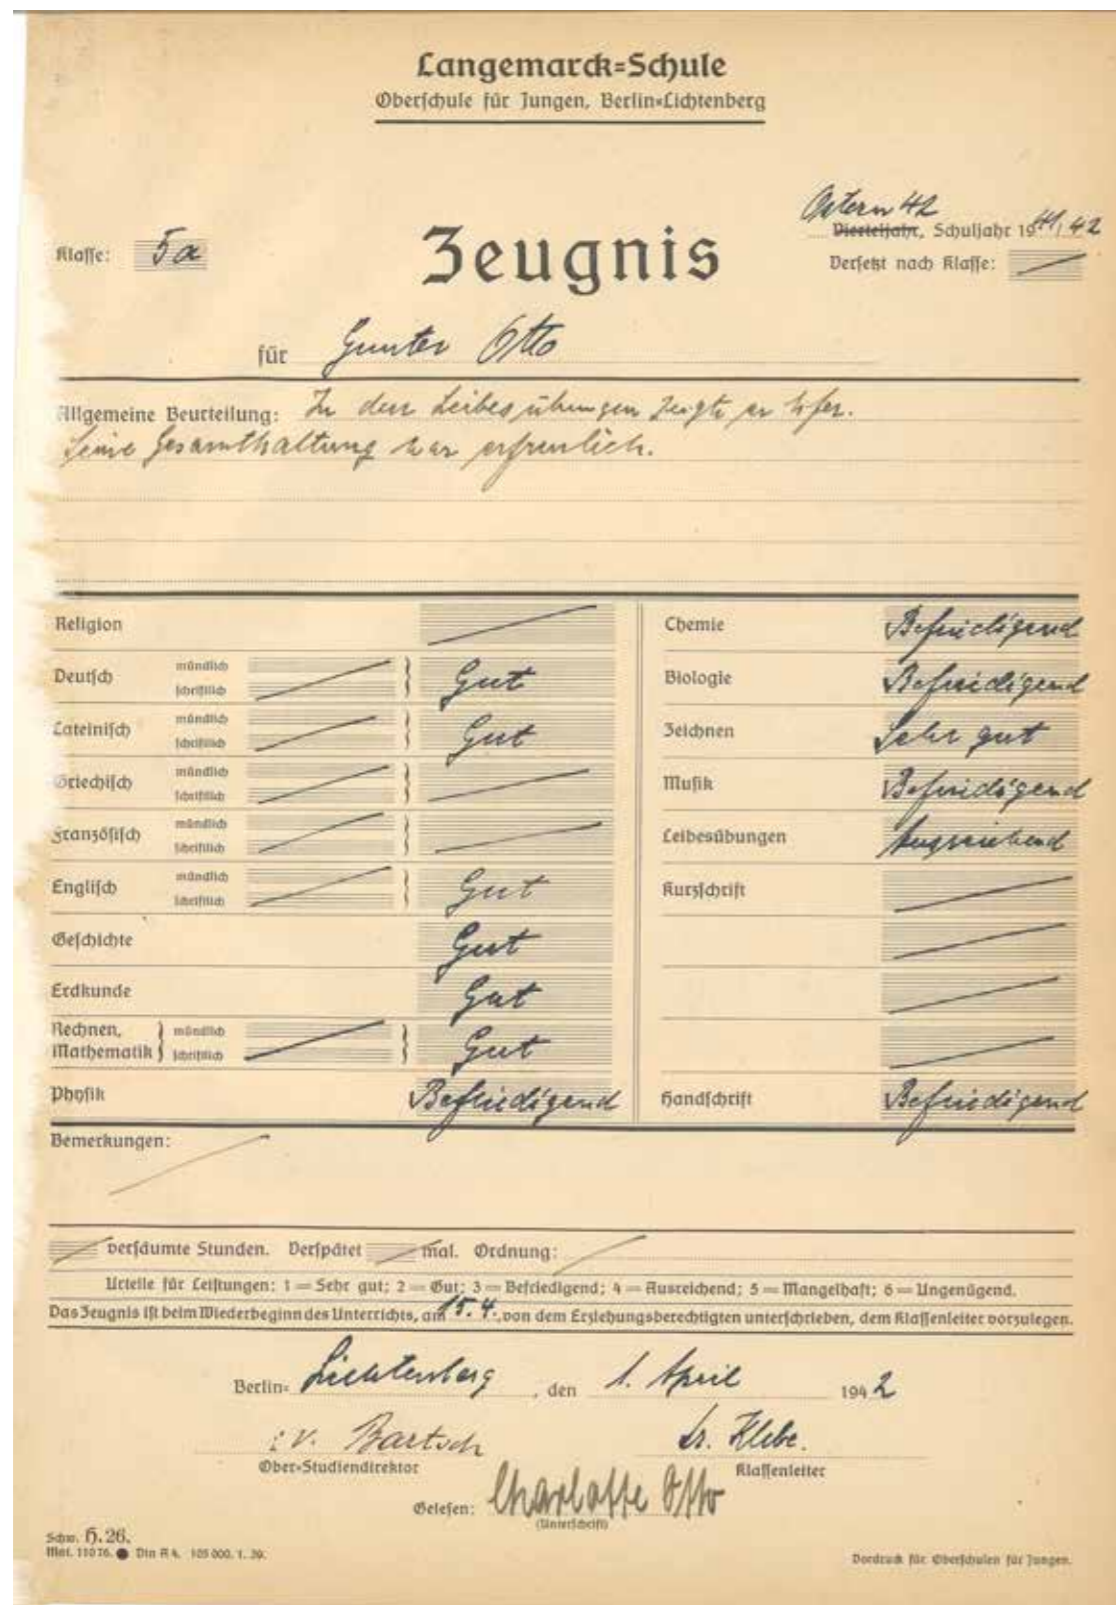 Langemarck=Schule
Oberschule für Jungen, Berlin=Lichtenberg
Ostern 42
Vierteljahr, Schuljahr 1941/42
Klasse: 5a
Zeugnis
Versetzt nach Klasse:
für Gunter Otto
Allgemeine Beurteilung: In den Leibesübungen zeigte er Eifer.
Seine Gesamthaltung war erfreulich.
Religion
Deutsch mündlich schriftlich Gut
Lateinisch mündlich schriftlich Gut
Griechisch mündlich schriftlich
Französisch mündlich schriftlich
Englisch mündlich schriftlich Gut
Geschichte Gut
Erdkunde Gut
Rechnen, Mathematik mündlich schriftlich Gut
Physik Befriedigend
Chemie Befriedigend
Biologie Befriedigend
Zeichnen Sehr gut
Musik Befriedigend
Leibesübungen Ausreichend
Kurzschrift
Handschrift Befriedigend
Bemerkungen:
versäumte Stunden. Verspätet mal. Ordnung:
Urteile für Leistungen: 1 = Sehr gut; 2 = Gut; 3 = Befriedigend; 4 = Ausreichend; 5 = Mangelhaft; 6 = Ungenügend.
Das Zeugnis ist beim Wiederbeginn des Unterrichts, am 15.4., von dem Erziehungsberechtigten unterschrieben, dem Klassenleiter vorzulegen.
Berlin= Lichtenberg, den 1. April 1942
i.V. Bartsch Dr. Klebe.
Ober=Studiendirektor Klassenleiter
Gelesen: Charlotte Otto
(Unterschrift)
Schw. H. 26.
Mat. 11076. Din A 4. 105 000. 1. 39.
Vordruck für Oberschulen für Jungen.